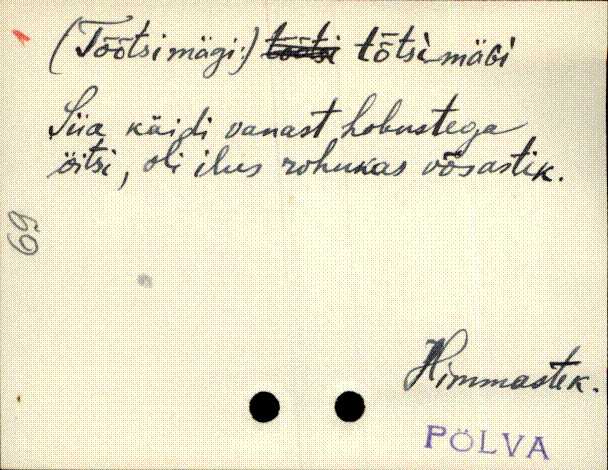 (Töötsimägi:) töötsi tõtsi-mäGi
Siia käidi vanast hobustega
öitsi, oli ilus rohukas võsastik.
69
Himmastek.
PÕLVA